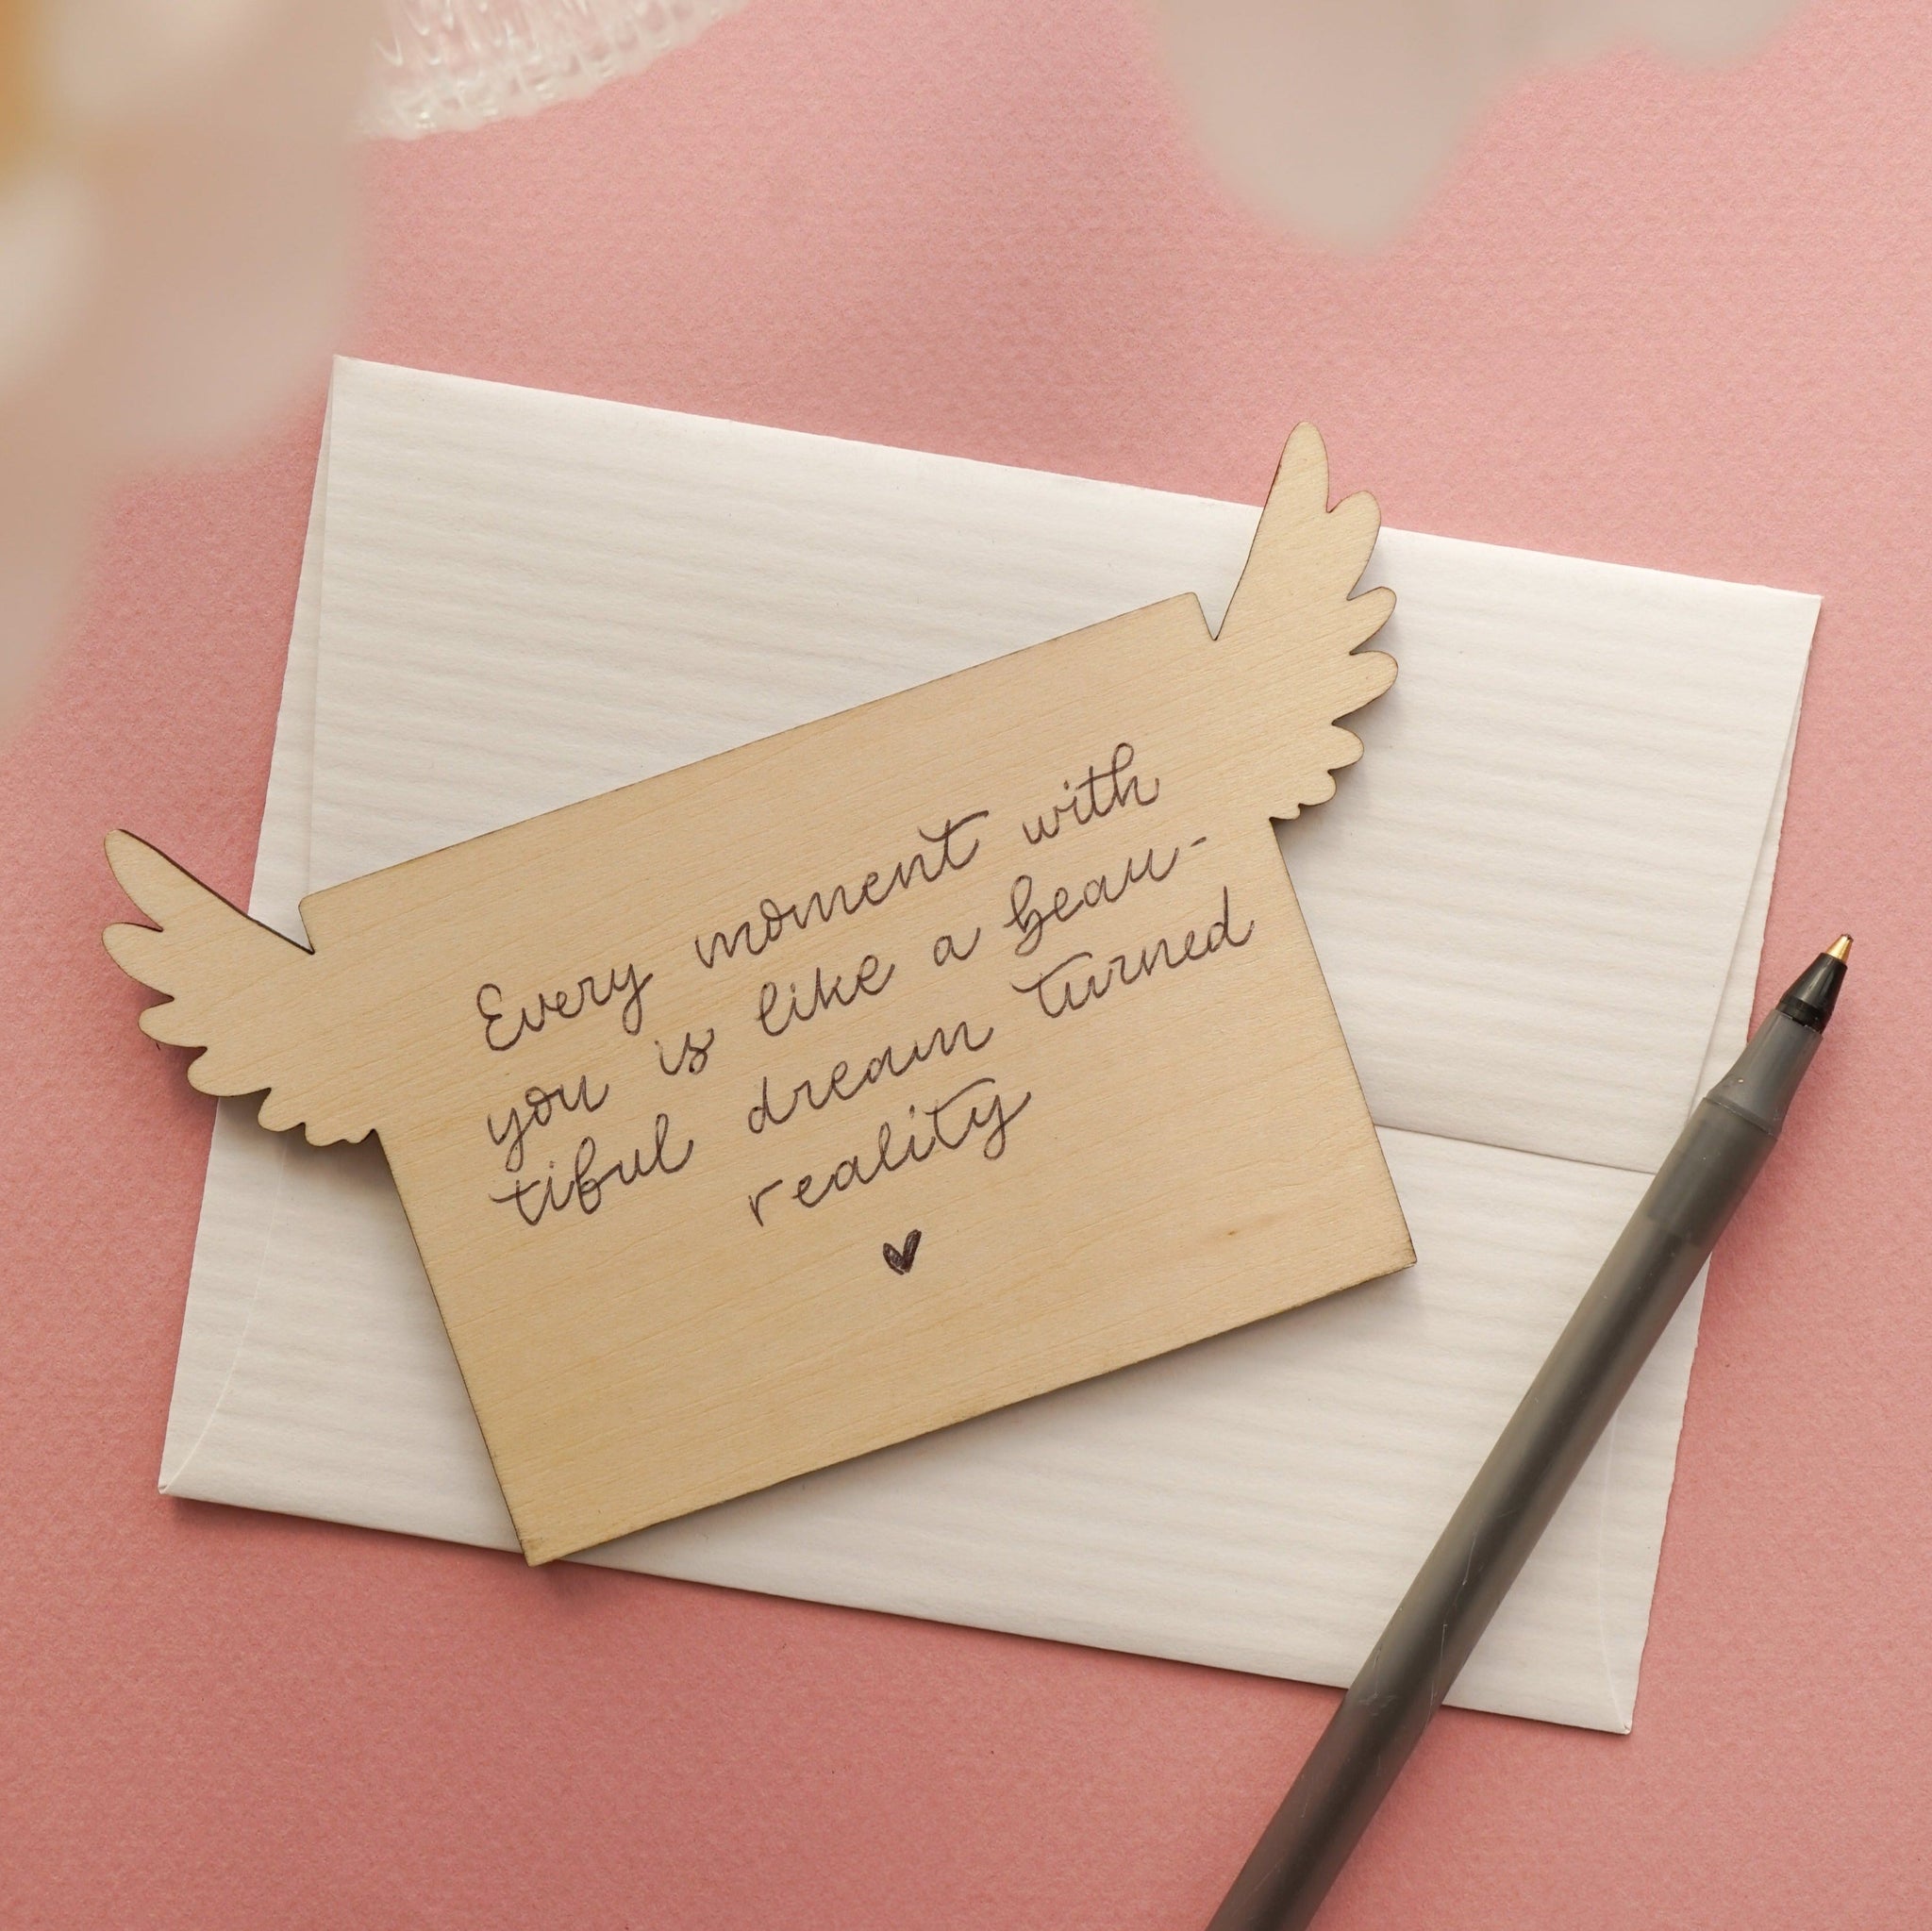 Every moment with
you is like a beau-
tiful dream turned
reality